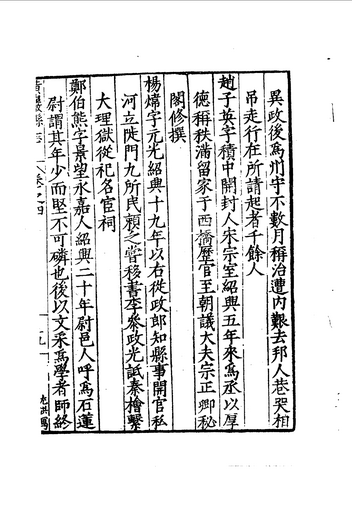 異政後爲州守不數月稱治遭内艱去邦人巷哭相
吊走行在所請起者千餘人
趙子英字積中開封人宋宗室紹興五年來爲丞以厚
德稱秩滿留家于西橋歷官王朝議大夫宗正卿秘
閣修撰
楊煒字元光紹興十九年以右從政郎知縣事開官私
河立陡門九所民賴之嘗移書李參政光詆秦檜繫
大理獄從祀名宦祠
鄭伯熊字景望永嘉人紹興二十年尉邑人呼爲石蓮
尉謂其年少而堅不可磷也後以文采爲學者師終